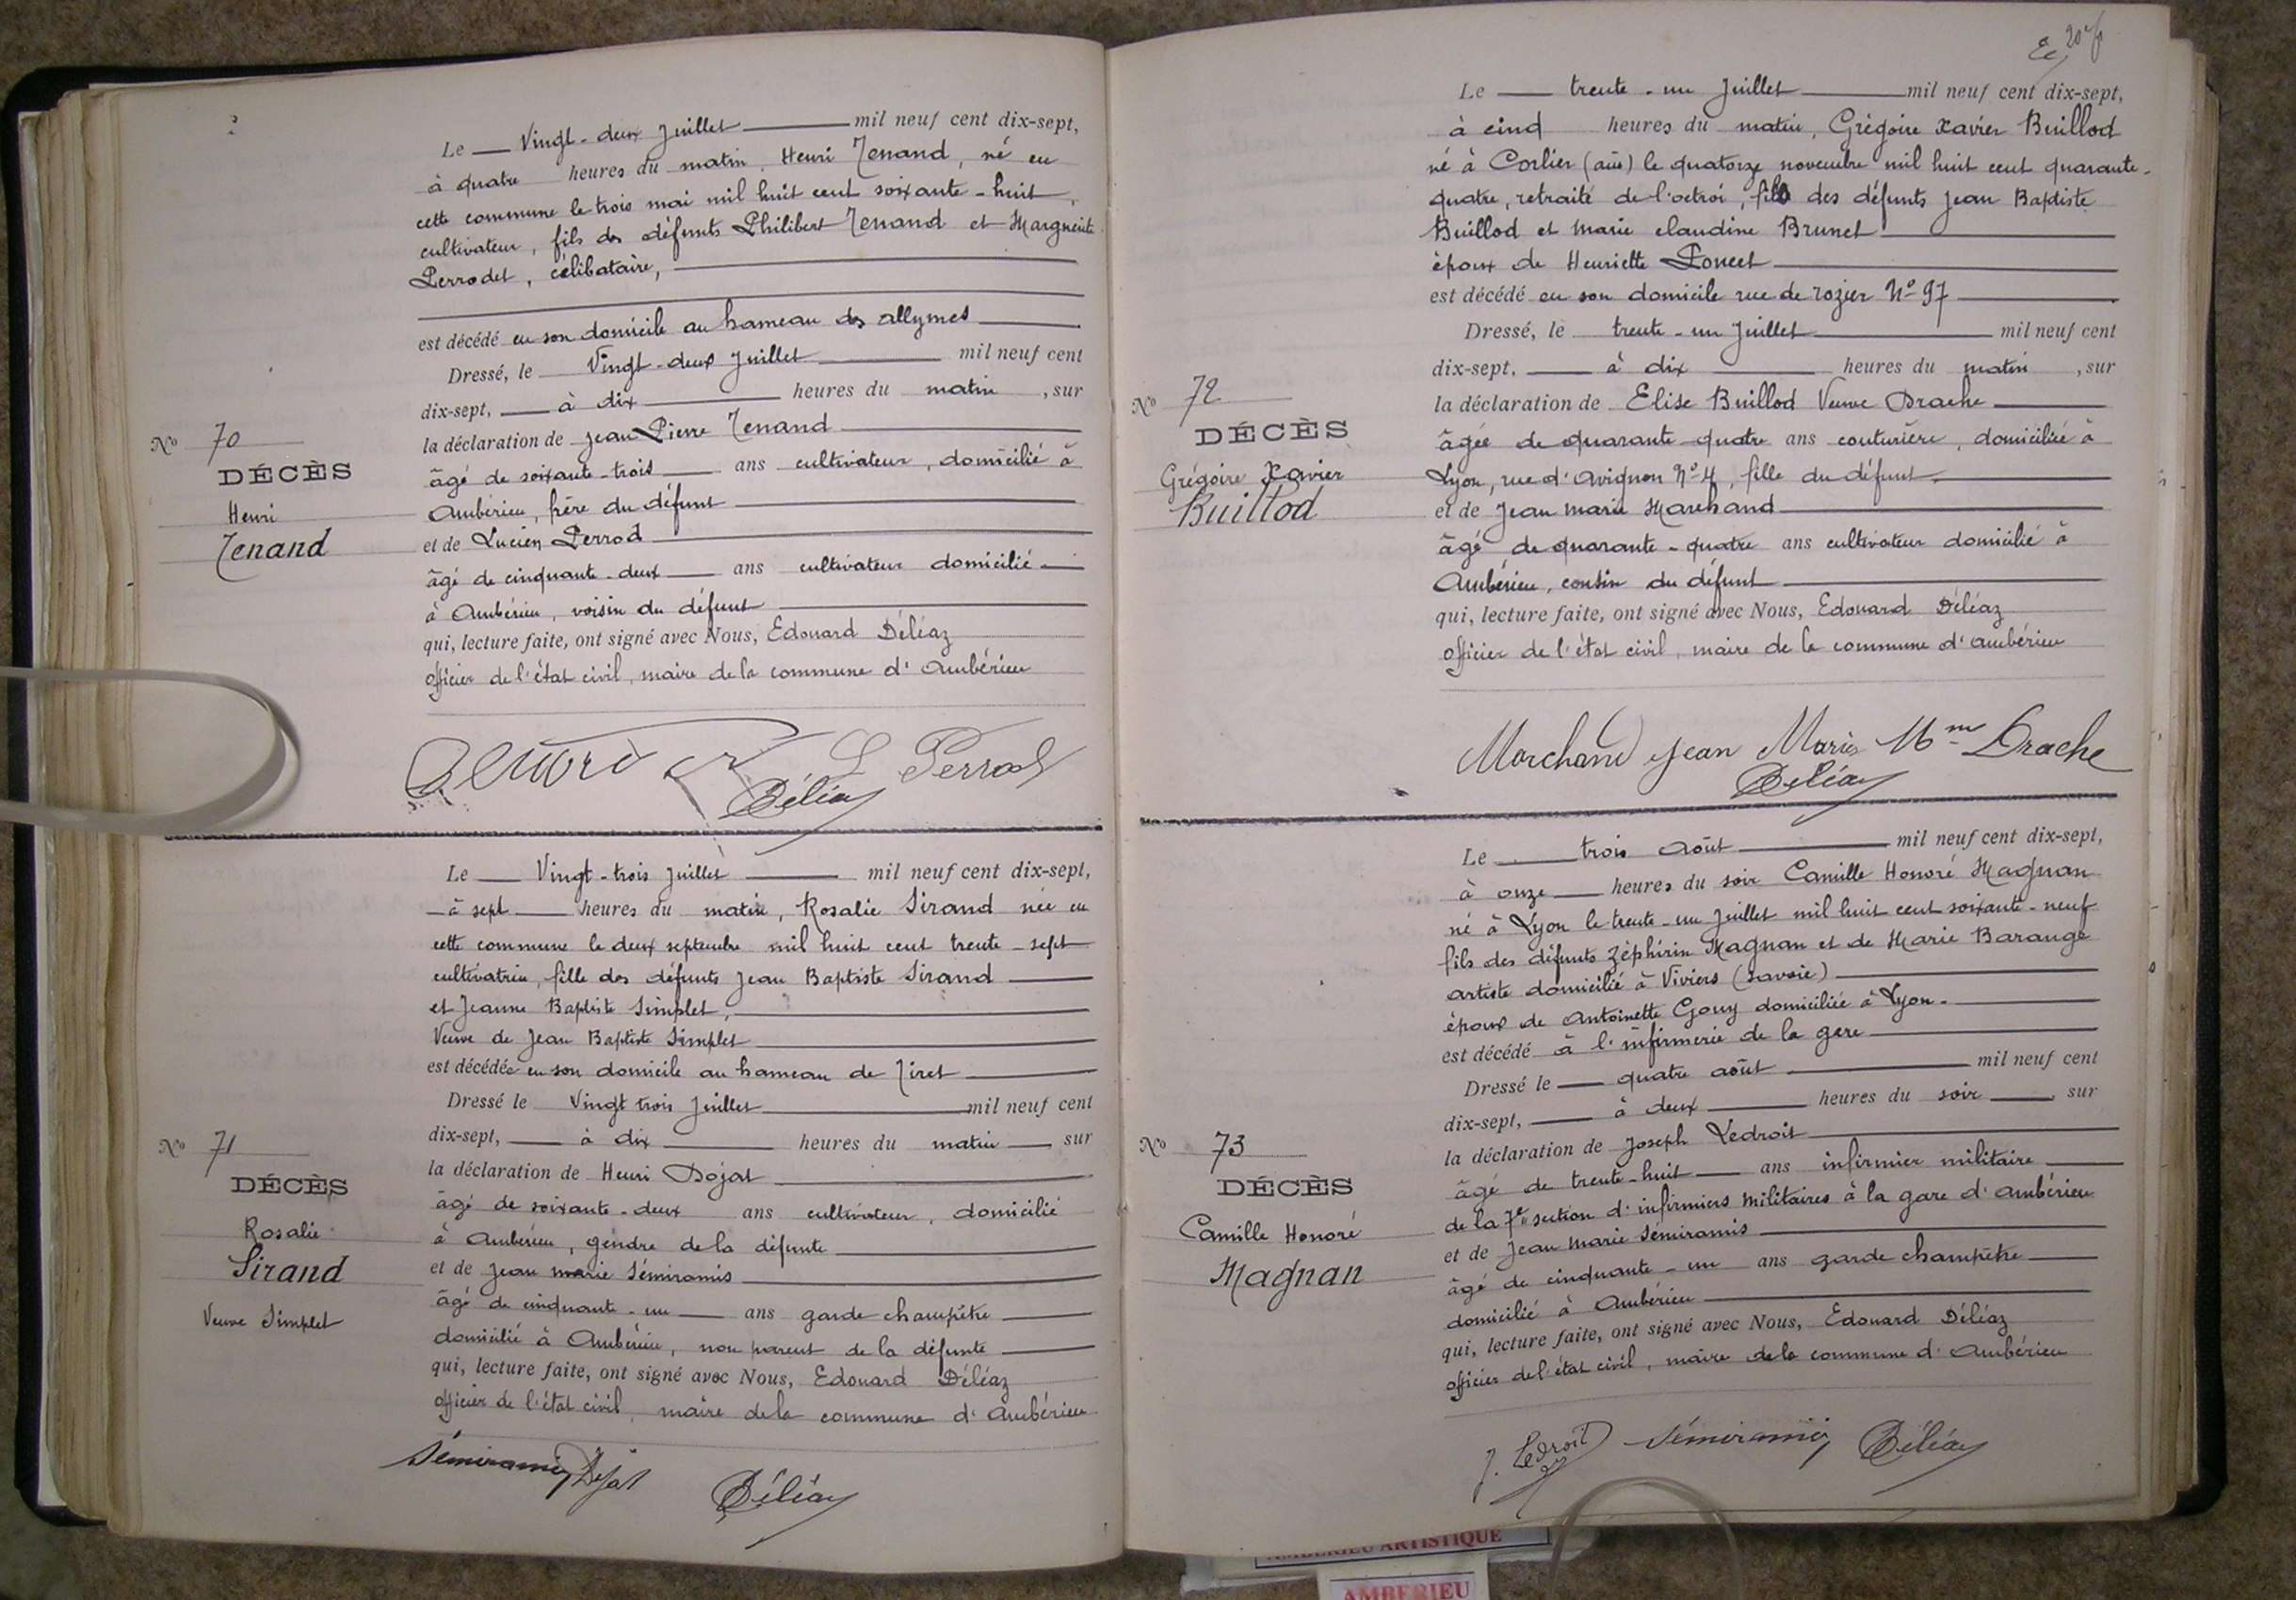 Le Vingt-deux Juillet mil neuf cent dix-sept,
à quatre heures du matin, Henri Tenand, né en
cette commune le trois mai mil huit cent soixante-huit,
cultivateur, fils des défunts Philibert Tenand et Marguerite
Perrodet, célibataire,
est décédé en son domicile au hameau des allymes
Dressé, le Vingt-deux Juillet mil neuf cent
dix-sept, à dix heures du matin, sur
No 70
la déclaration de Jean Pierre Tenand
DÉCÈS
âgé de soixante-trois ans cultivateur, domicilié à
Henri
Ambérieu, frère du défunt
Tenand
et de Lucien Perrod
âgé de cinquante-deux ans cultivateur domicilié
à Ambérieu, voisin du défunt
qui, lecture faite, ont signé avec Nous, Edouard Déléaz
officier de l'état civil, maire de la commune d'Ambérieu
L Perrod
Déléaz
Le Vingt-trois Juillet mil neuf cent dix-sept,
à sept heures du matin, Rosalie Sirand née en
cette commune le deux septembre mil huit cent trente-sept
cultivatrice, fille des défunts Jean Baptiste Sirand
et Jeanne Baptiste Simplet,
Veuve de Jean Baptiste Simplet
est décédée en son domicile au hameau de Tiret
Dressé le Vingt trois Juillet mil neuf cent
dix-sept, à dix heures du matin sur
No 71
la déclaration de Henri Dojat
DÉCÈS
âgé de soixante-deux ans cultivateur, domicilié
Rosalie
à Ambérieu, gendre de la défunte
Sirand
et de Jean marie Sémiramis
Veuve Simplet
âgé de cinquante-un ans garde champêtre
domicilié à Ambérieu, non parent de la défunte
qui, lecture faite, ont signé avec Nous, Edouard Déléaz
officier de l'état civil, maire de la commune d'Ambérieu
Sémiramis Dojat
Déléaz
Le trente-un Juillet mil neuf cent dix-sept,
à cinq heures du matin, Grégoire Xavier Buillod
né à Corlier (ain) le quatorze novembre mil huit cent quarante-
quatre, retraité de l'octroi, fils des défunts Jean Baptiste
Buillod et marie claudine Brunet
époux de Henriette Poncet
est décédé en son domicile rue de rozier No 97
Dressé, le trente-un Juillet mil neuf cent
dix-sept, à dix heures du matin, sur
No 72
la déclaration de Elise Buillod Veuve Drache
DÉCÈS
âgée de quarante-quatre ans couturière, domiciliée à
Grégoire Xavier
Lyon, rue d'avignon No 4, fille du défunt
Buillod
et de Jean marie Marchand
âgé de quarante-quatre ans cultivateur domicilié à
Ambérieu, cousin du défunt
qui, lecture faite, ont signé avec Nous, Edouard Déléaz
officier de l'état civil, maire de la commune d'ambérieu
Marchand Jean Marie Mme Drache
Déléaz
Le trois août mil neuf cent dix-sept,
à onze heures du soir Camille Honoré Magnan
né à Lyon le trente-un Juillet mil huit cent soixante-neuf
fils des défunts Zéphirin Magnan et de Marie Barange
artiste domicilié à Viviers (savoie)
époux de Antoinette Gouy domiciliée à Lyon
est décédé à l'infirmerie de la gare
Dressé le quatre août mil neuf cent
dix-sept, à deux heures du soir, sur
No 73
la déclaration de Joseph Ledroit
DÉCÈS
âgé de trente-huit ans infirmier militaire
Camille Honoré
de la 7e section d'infirmiers militaires à la gare d'ambérieu
Magnan
et de Jean marie Sémiramis
âgé de cinquante-un ans garde champêtre
domicilié à Ambérieu
qui, lecture faite, ont signé avec Nous, Edouard Déléaz
officier de l'état civil, maire de la commune d'Ambérieu
J. Ledroit Sémiramis Déléaz
AMBERIEU ARTISTIQUE
AMBERIEU